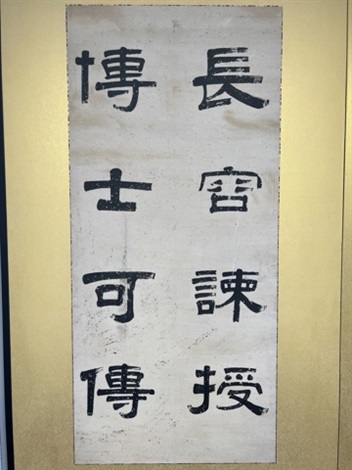 長容諫授
博士可傳